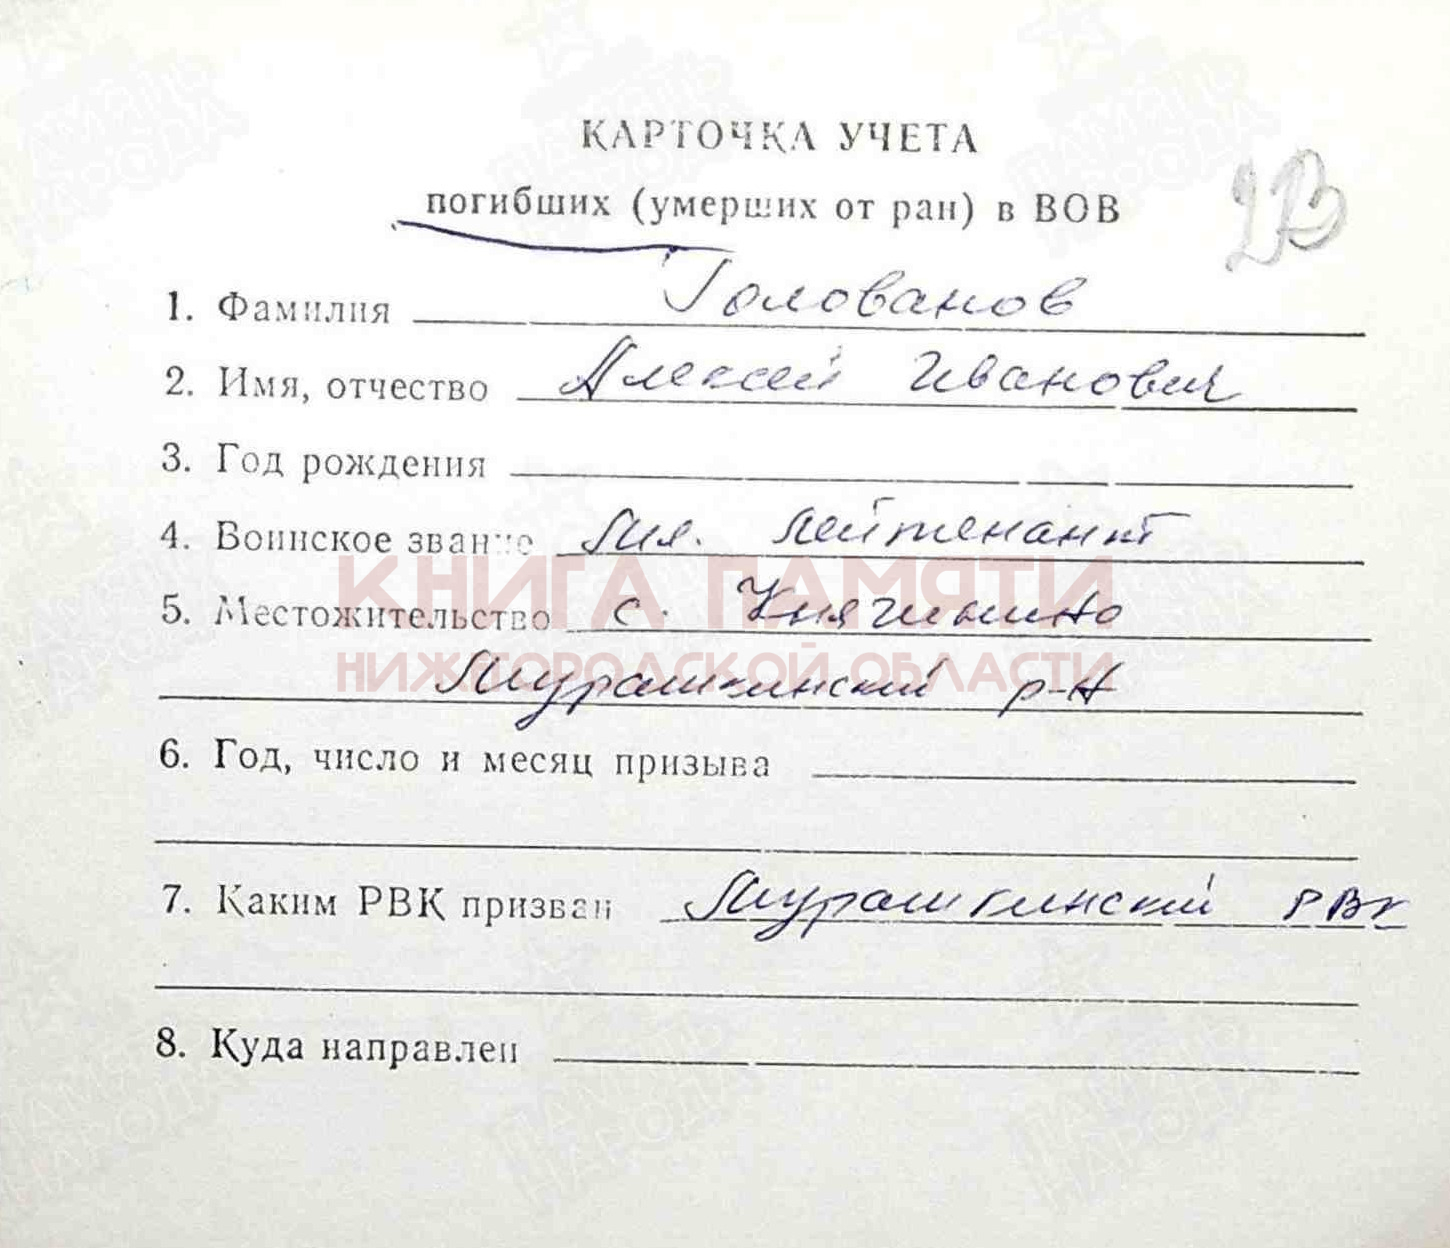 КАРТОЧКА УЧЕТА
погибших (умерших от ран) в ВОВ
1. Фамилия Голованов
2. Имя, отчество Алексей Иванович
3. Год рождения
4. Воинское звание Мл. лейтенант
5. Местожительство с. Княгинино
КНИГА ПАМЯТИ
НИЖЕГОРОДСКОЙ ОБЛАСТИ
Мурашкинский р-н
6. Год, число и месяц призыва
7. Каким РВК призван Мурашкинский РВК
8. Куда направлен
ПАМЯТЬ НАРОДА